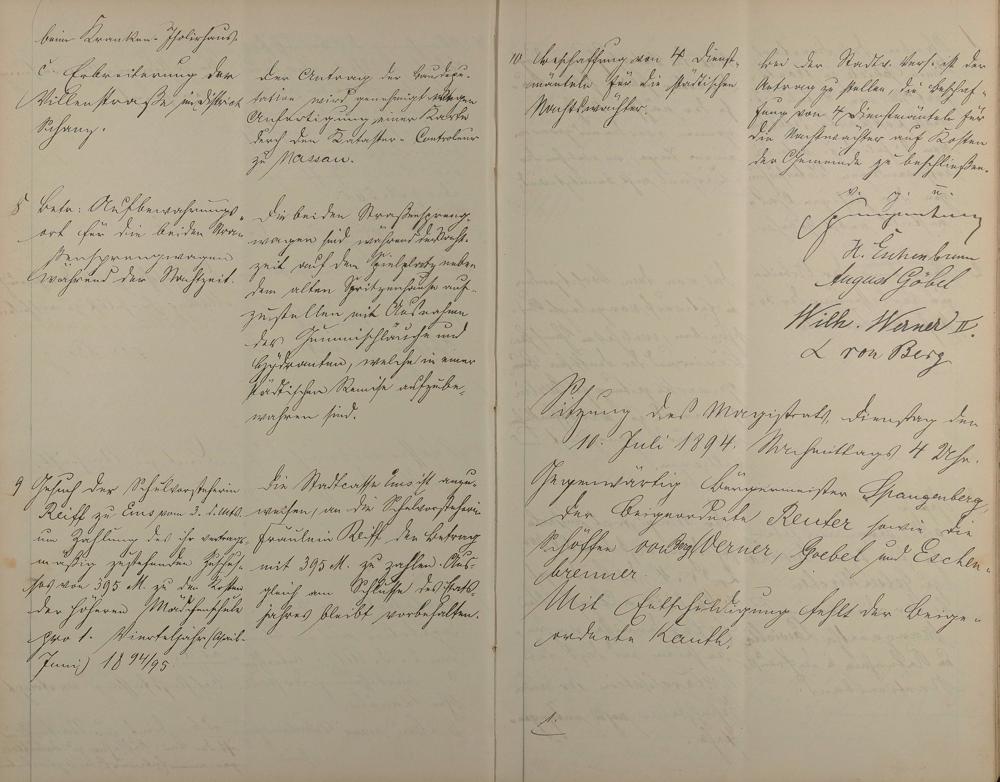 beim Kranken-Isolirhaus.
c. Erbreiterung der
Villenstraße im District
Schanz.
Der Antrag der Baudepu-
tation wird genehmigt wegen
Anfertigung einer Karte
durch den Kataster-Controleur
zu Nassau.
8 Betr: Aufbewahrungs-
ort für die beiden Stra-
ßensprengwagen
während der Nachtzeit.
Die beiden Straßenspreng-
wagen sind während der Nacht-
zeit auf dem Spielplatz neben
dem alten Spritzenhause auf-
zustellen mit Ausnahme
der Gummischläuche und
Hydranten, welche in einer
städtischen Remise aufzube-
wahren sind.
9 Gesuch der Schulvorsteherin
Reiff zu Ems vom 2. d. Mts.
um Zahlung des ihr vertrags-
mäßig zustehenden Zuschus-
ses von 395 M. zu den Kosten
der höheren Mädchenschule
pro 1. Vierteljahr (April-
Juni) 1894/95
Die Stadtcasse Ems ist anzu-
weisen, an die Schulvorsteherin
Fräulein Reiff den Betrag
mit 395 M. zu zahlen. Aus-
gleich am Schlusse des Etats-
jahres bleibt vorbehalten.
10 Beschaffung von 4 Dienst-
mänteln für die städtischen
Nachtwächter.
Bei der Stadtv. Vers. ist der
Antrag zu stellen, die Beschaf-
fung von 4 Dienstmänteln für
die Nachtwächter auf Kosten
der Gemeinde zu beschließen.
v. g. u.
Spangenberg
H. Eschenbrenn
August Göbel
Wilh. Werner II.
L von Berg
Sitzung des Magistrats, Dienstag den
10. Juli 1894. Nachmittags 4 Uhr.
Gegenwärtig Bürgermeister Spangenberg,
der Beigeordnete Reuter sowie die
Schöffen von Berg, Werner, Goebel und Eschen-
brenner.
Mit Entschuldigung fehlt der Beige-
ordnete Kauth.
1.